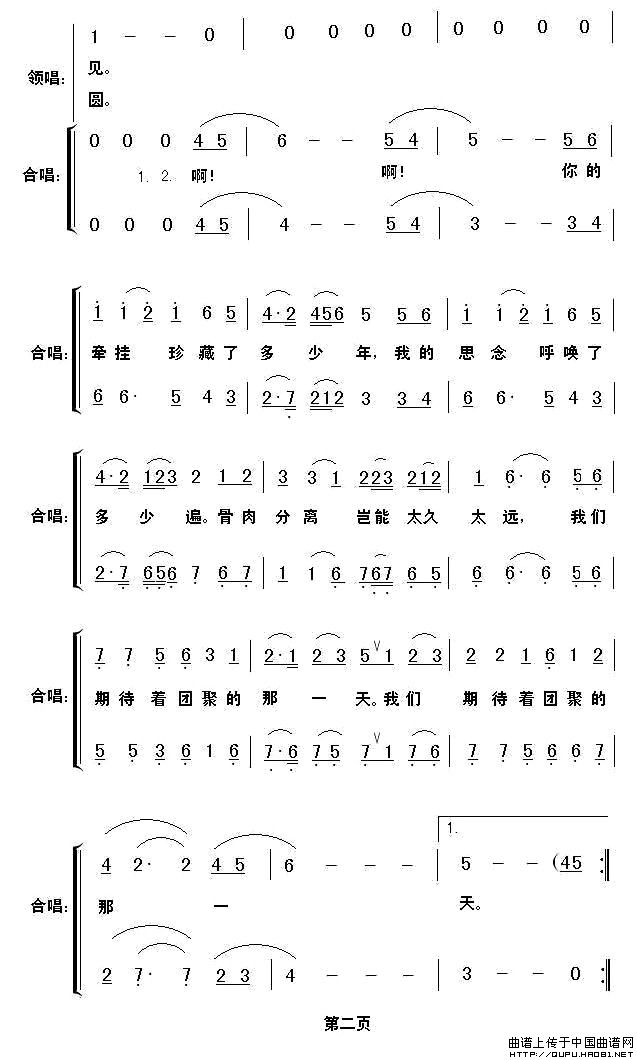 1 - - 0 | 0 0 0 0 | 0 0 0 0
领唱： 见。
圆。
0 0 0 4 5 | 6 - - 5 4 | 5 - - 5 6
合唱： 1. 2. 啊！ 啊！ 你的
0 0 0 4 5 | 4 - - 5 4 | 3 - - 3 4
1 1 2 1 6 5 | 4·2 456 5 5 6 | 1 1 2 1 6 5
合唱： 牵挂 珍藏了 多 少 年，我的 思念 呼唤了
6 6· 5 4 3 | 2·7 212 3 3 4 | 6 6· 5 4 3
4·2 123 2 1 2 | 3 3 1 223 212 | 1 6· 6 5 6
合唱： 多 少 遍。骨肉 分离 岂能 太久 太远， 我们
2·7 656 7 6 7 | 1 1 6 767 6 5 | 6 6· 6 5 6
7 7 5 6 3 1 | 2·1 2 3 5 V 1 2 3 | 2 2 1 6 1 2
合唱： 期待着团聚的 那 一 天。我们 期待着团聚的
5 5 3 6 1 6 | 7·6 7 5 7 V 1 7 6 | 7 7 5 6 6 7
1.
4 2· 2 4 5 | 6 - - - | 5 - - (45 :||
合唱： 那 一 天。
2 7· 7 2 3 | 4 - - - | 3 - - 0 :||
第二页
曲谱上传于中国曲谱网
HTTP://QUPU.HAO81.NET